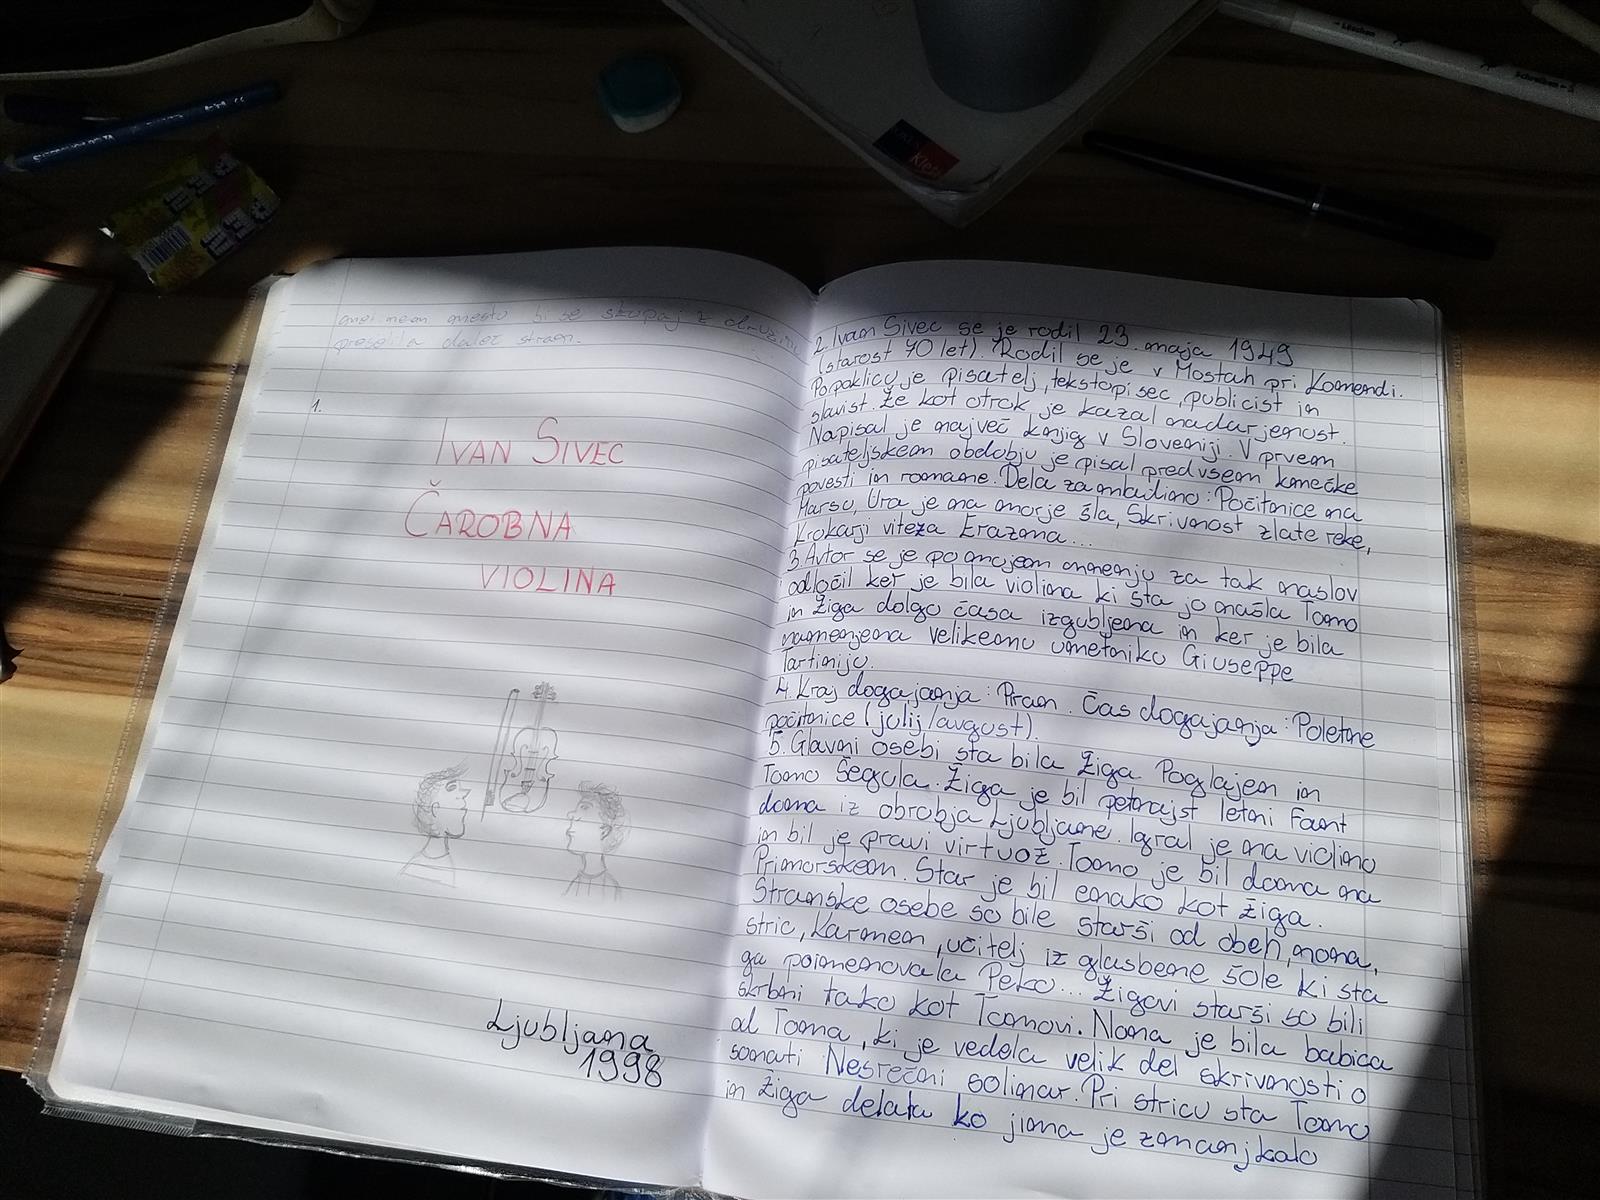 mesto bi se skupaj z družino
preselila daleč stran.
1.
IVAN SIVEC
ČAROBNA
VIOLINA
Ljubljana
1998
2. Ivan Sivec se je rodil 23. maja 1949
(starost 70 let). Rodil se je v Mostah pri Komendi.
Po poklicu je pisatelj, tekstopisec, publicist in
slavist. Že kot otrok je kazal nadarjenost.
Napisal je največ knjig v Sloveniji. V prvem
pisateljskem obdobju je pisal predvsem kmečke
povesti in romane. Dela za mladino: Počitnice na
Marsu, Ura je na morje šla, Skrivnost zlate reke,
Krokarji viteza Erazma...
3. Avtor se je po mojem mnenju za tak naslov
odločil ker je bila violina ki sta jo našla Tomo
in Žiga dolgo časa izgubljena in ker je bila
namenjena velikemu umetniku Giuseppe
Tartiniju.
4. Kraj dogajanja: Piran. Čas dogajanja: Poletne
počitnice (julij/avgust).
5. Glavni osebi sta bila Žiga Poglajen in
Tomo Šegula. Žiga je bil petnajst letni fant
doma iz obrobja Ljubljane. Igral je na violino
in bil je pravi virtuoz. Tomo je bil doma na
Primorskem. Star je bil enako kot Žiga.
Stranske osebe so bile starši od obeh, nona,
stric, Karmen, učitelj iz glasbene šole ki sta
ga poimenovala Peko... Žigovi starši so bili
skrbni tako kot Tomovi. Nona je bila babica
od Toma, ki je vedela velik del skrivnosti o
sonati Nesrečni solinar. Pri stricu sta Tomo
in Žiga delala ko jima je zmanjkalo
Klett